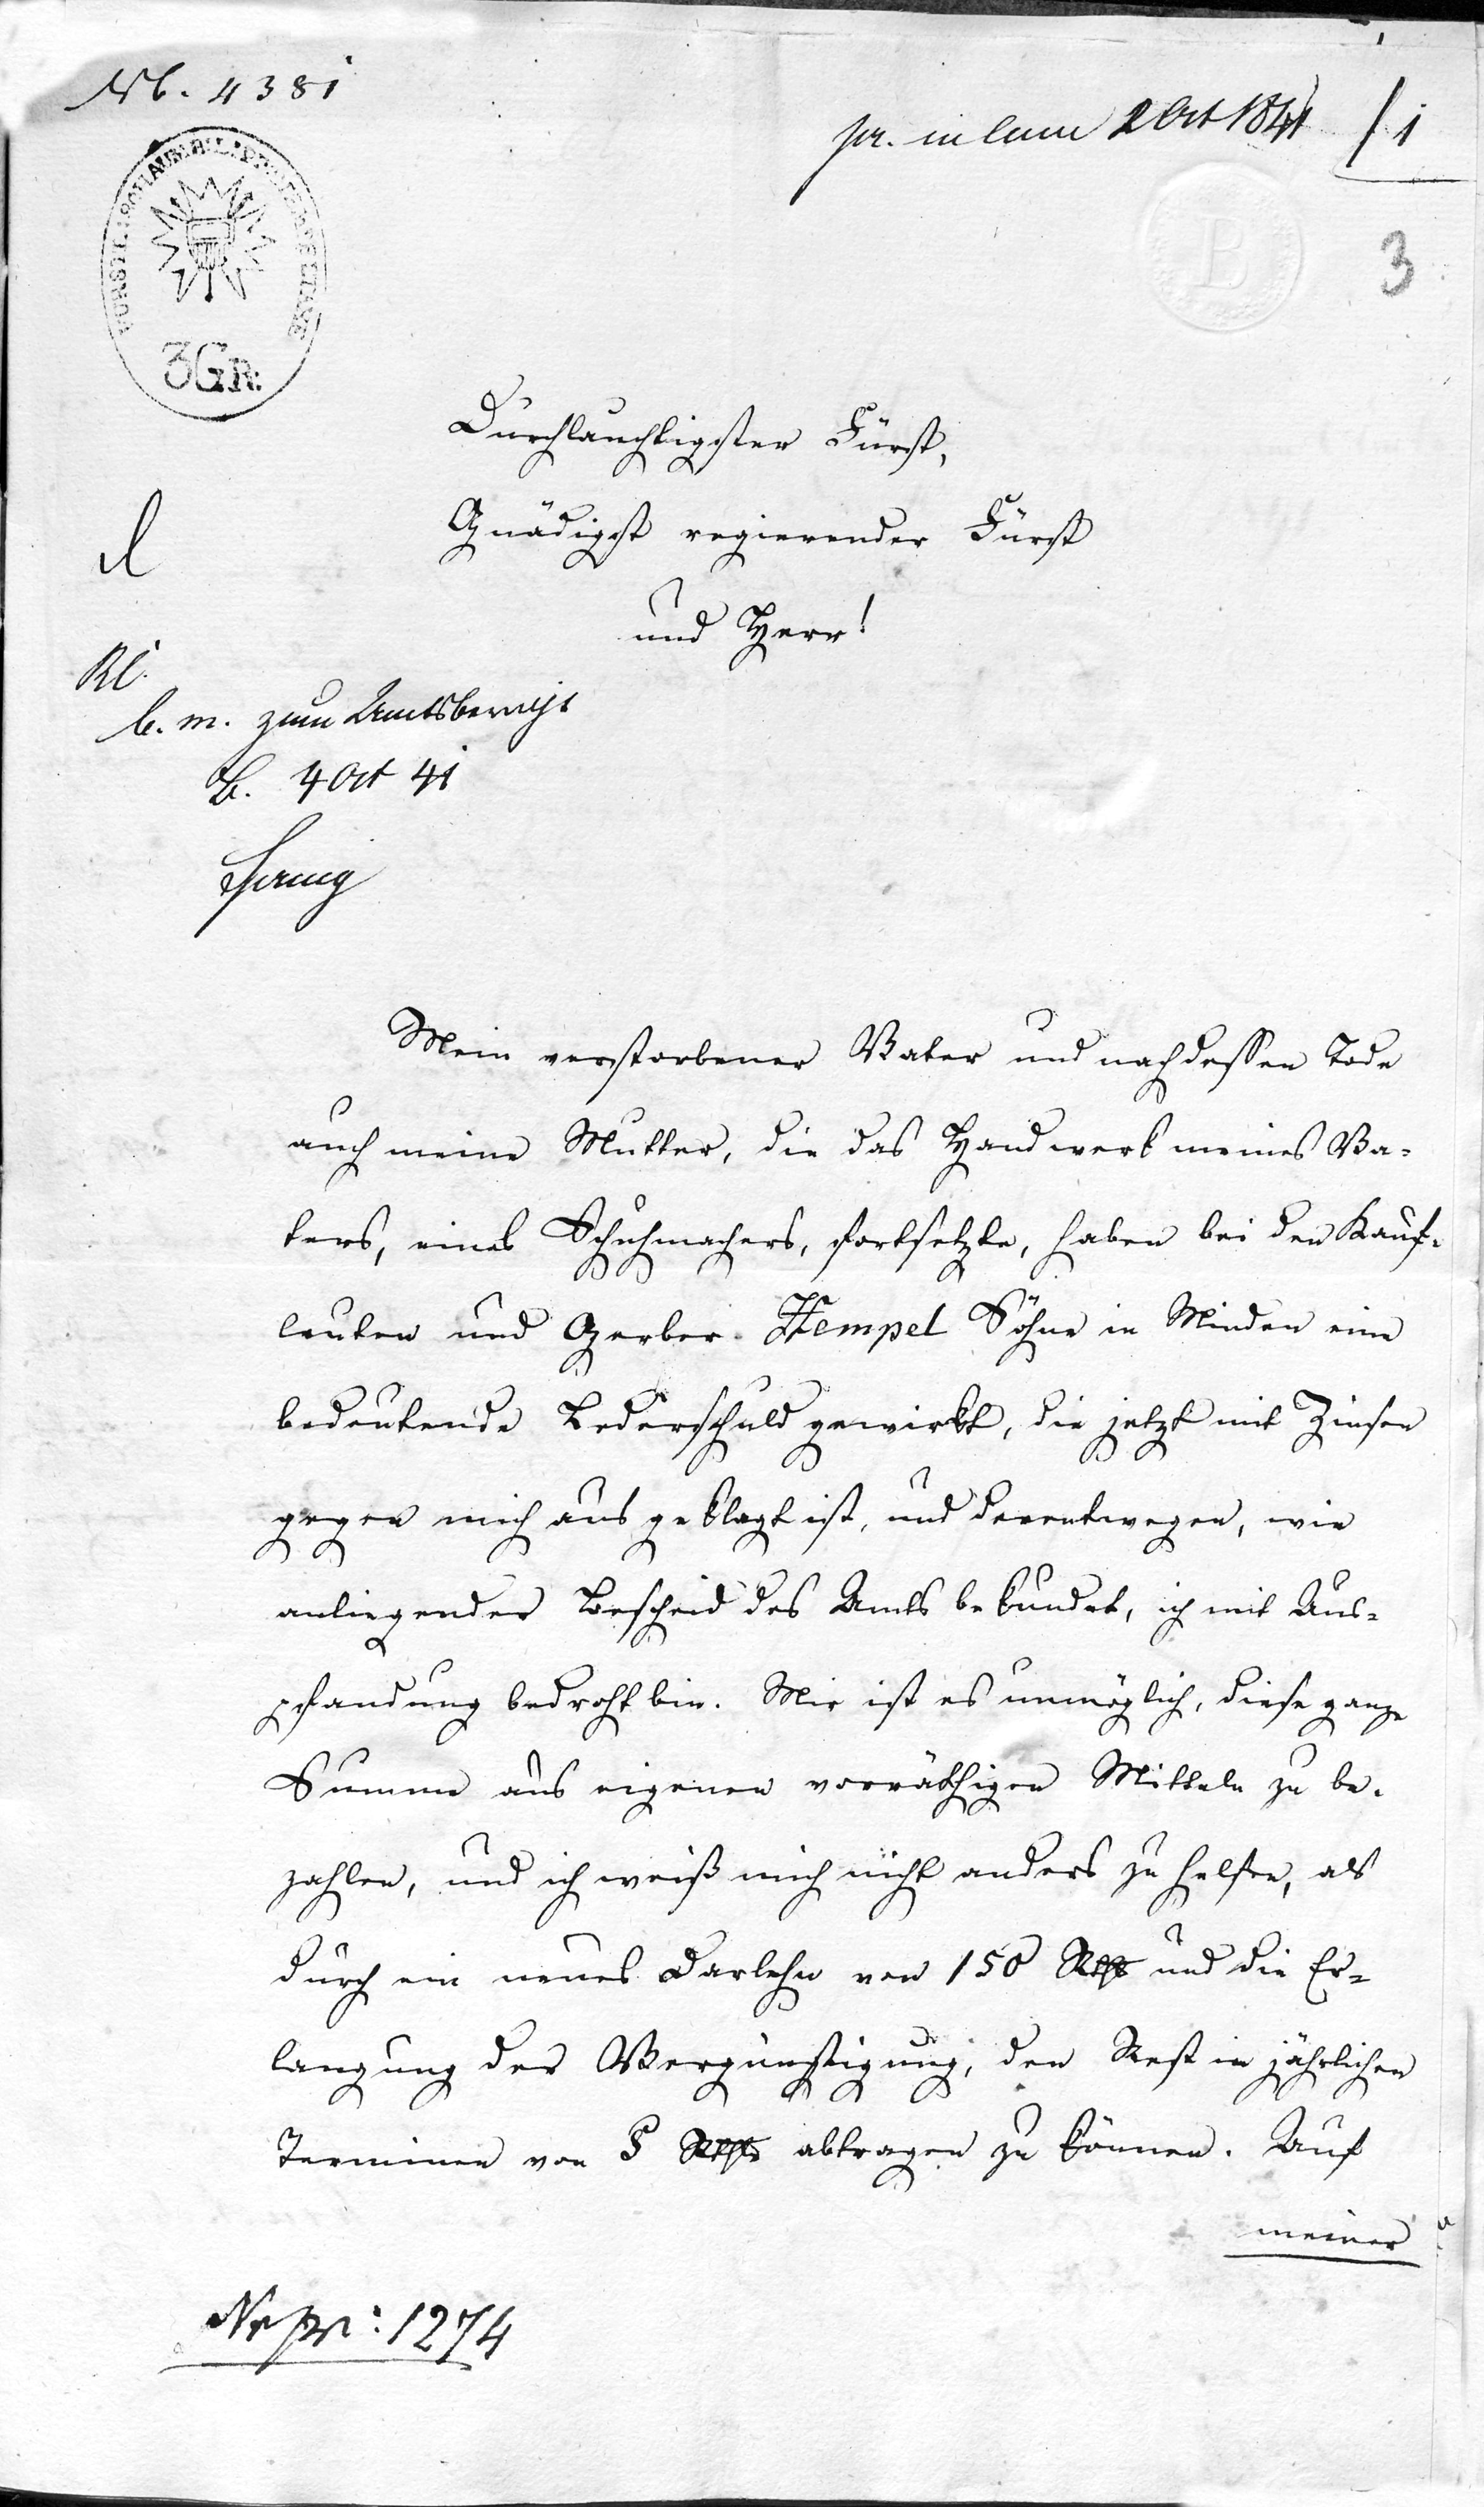 Nb. 4381
pr. in cam 2 Oct 1841
1
3
3 GR:
Durchlauchtigster Fürst,
Gnädigst regierender Fürst
und Herr!
b. m. zum Amtsbericht
B. 4 Oct 41
Mein verstorbener Vater und nach dessen Tode
auch meine Mutter, die das Handwerk meines Va-
ters, eines Schuhmachers, fortsetzte, haben bei den Kauf-
leuten und Gerber Hempel Söhne in Minden eine
bedeutende Lederschuld gewirkt, die jetzt mit Zinsen
gegen mich aus geklagt ist, und derentwegen, wie
anliegender Bescheid des Amts bekundet, ich mit Aus-
pfandung bedroht bin. Mir ist es unmöglich, diese ganze
Summe aus eigenen vorräthigen Mitteln zu be-
zahlen, und ich weiß mich nicht anders zu helfen, als
durch ein neues Darlehn von 150 Rthlr und die Er-
langung der Vergünstigung, den Rest in jährlichen
Terminen von 5 Rthlr abtragen zu können. Auf
meiner
Nr pr: 1274